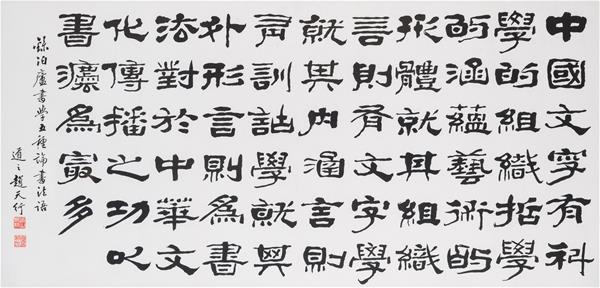 中國文字有科
學的組織哲學
的涵蘊藝術的
形體就其組織
言則有文字學
就其内涵言則
有訓詁學就其
外形言則為書
法對於中華文
化傳播之功以
書灋為最多
錄泊廬書學五種論書法語
道之趙天行